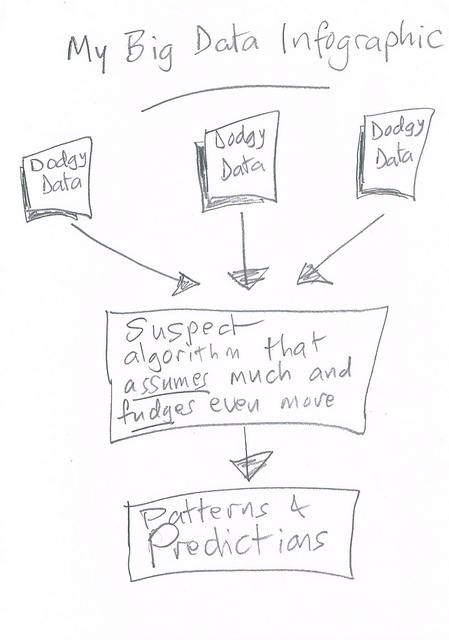 My Big Data Infographic
Dodgy
Data
Dodgy
Data
Dodgy
Data
Suspect
algorithm that
assumes much and
fudges even more
Patterns &
Predictions